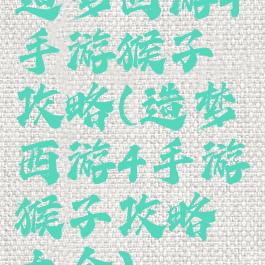 造梦西游4
手游猴子
攻略(造梦
西游4手游
猴子攻略
大全)